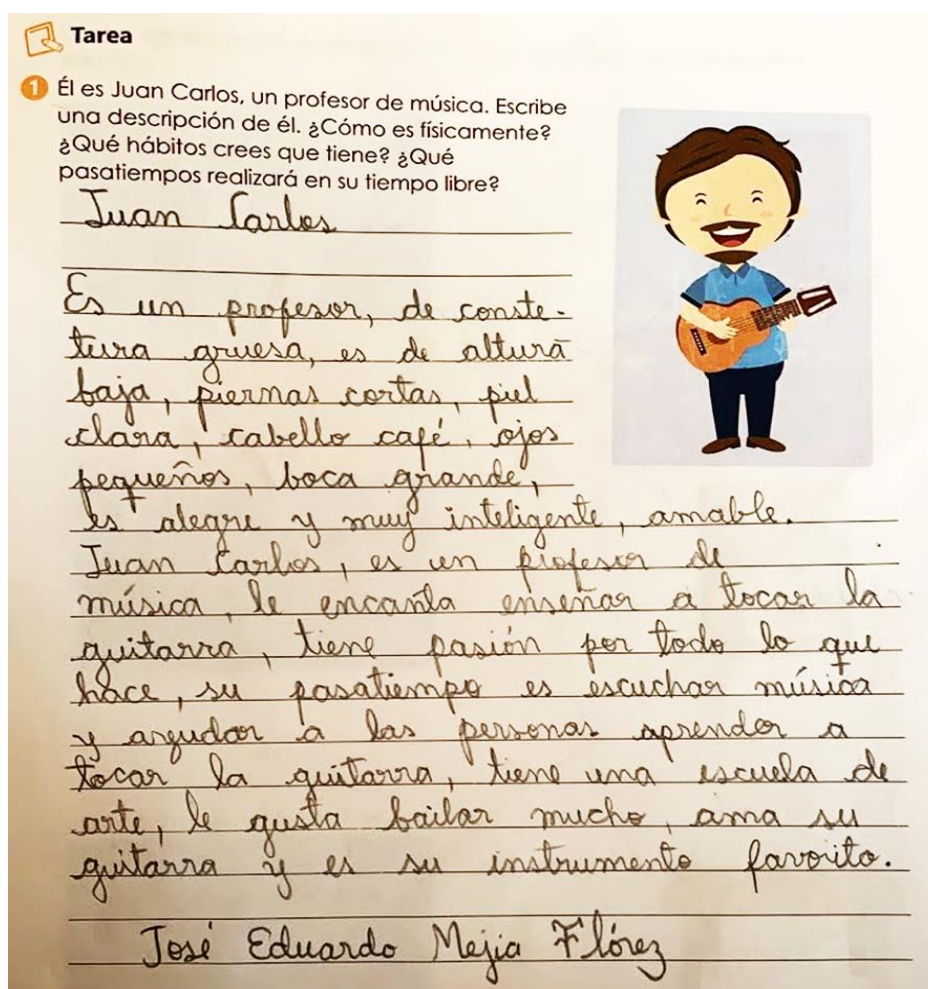 Tarea
1 Él es Juan Carlos, un profesor de música. Escribe
una descripción de él. ¿Cómo es físicamente?
¿Qué hábitos crees que tiene? ¿Qué
pasatiempos realizará en su tiempo libre?
Juan Carlos
Es un profesor, de conste-
tura gruesa, es de altura
baja, piernas cortas, piel
clara, cabello café, ojos
pequeños, boca grande,
es alegre y muy inteligente, amable.
Juan Carlos, es un profesor de
música, le encanta enseñar a tocar la
guitarra, tiene pasión por todo lo que
hace, su pasatiempo es escuchar música
y ayudar a las personas aprender a
tocar la guitarra, tiene una escuela de
arte, le gusta bailar mucho, ama su
guitarra y es su instrumento favorito.
José Eduardo Mejia Flórez